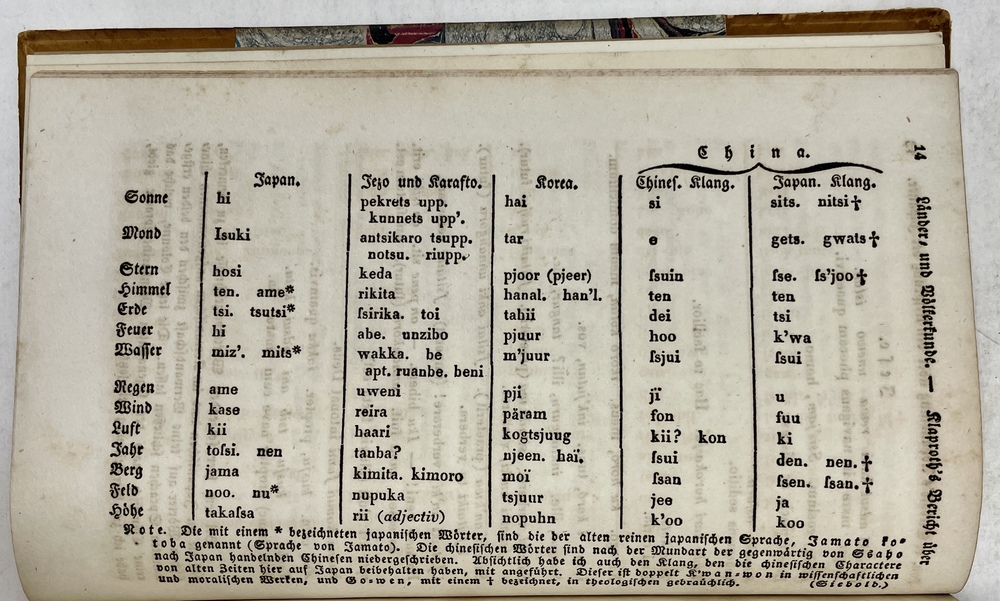 14 Länder= und Völkerkunde. — Klaproth's Bericht über
China.
Japan. Jezo und Karafto. Korea. Chines. Klang. Japan. Klang.
Sonne hi pekrets upp. hai si sits. nitsi†
kunnets upp'.
Mond Isuki antsikaro tsupp. tar e gets. gwats†
notsu. riupp.
Stern hosi keda pjoor (pjeer) ſsuin ſse. ſs'joo†
Himmel ten. ame* rikita hanal. han'l. ten ten
Erde tsi. tsutsi* ſsirika. toi tahii dei tsi
Feuer hi abe. unzibo pjuur hoo k'wa
Waſſer miz'. mits* wakka. be m'juur ſsjui ſsui
apt. ruanbe. beni
Regen ame uweni pji jï u
Wind kase reira päram fon fuu
Luft kii haari kogtsjuug kii? kon ki
Jahr toſsi. nen tanba? njeen. haï. ſsui den. nen.†
Berg jama kimita. kimoro moï ſsan ſsen. ſsan.†
Feld noo. nu* nupuka tsjuur jee ja
Höhe takaſsa rii (adjectiv) nopuhn k'oo koo
Note. Die mit einem * bezeichneten japanischen Wörter, sind die der alten reinen japanischen Sprache, Jamato ko=
toba genannt (Sprache von Jamato). Die chinesischen Wörter sind nach der Mundart der gegenwärtig von Saaho
nach Japan handelnden Chinesen niedergeschrieben. Absichtlich habe ich auch den Klang, den die chinesischen Charactere
von alten Zeiten hier auf Japan beibehalten haben, mit angeführt. Dieser ist doppelt K'wan=won in wissenschaftlichen
und moralischen Werken, und Go=wen, mit einem † bezeichnet, in theologischen gebräuchlich. (Siebold.)